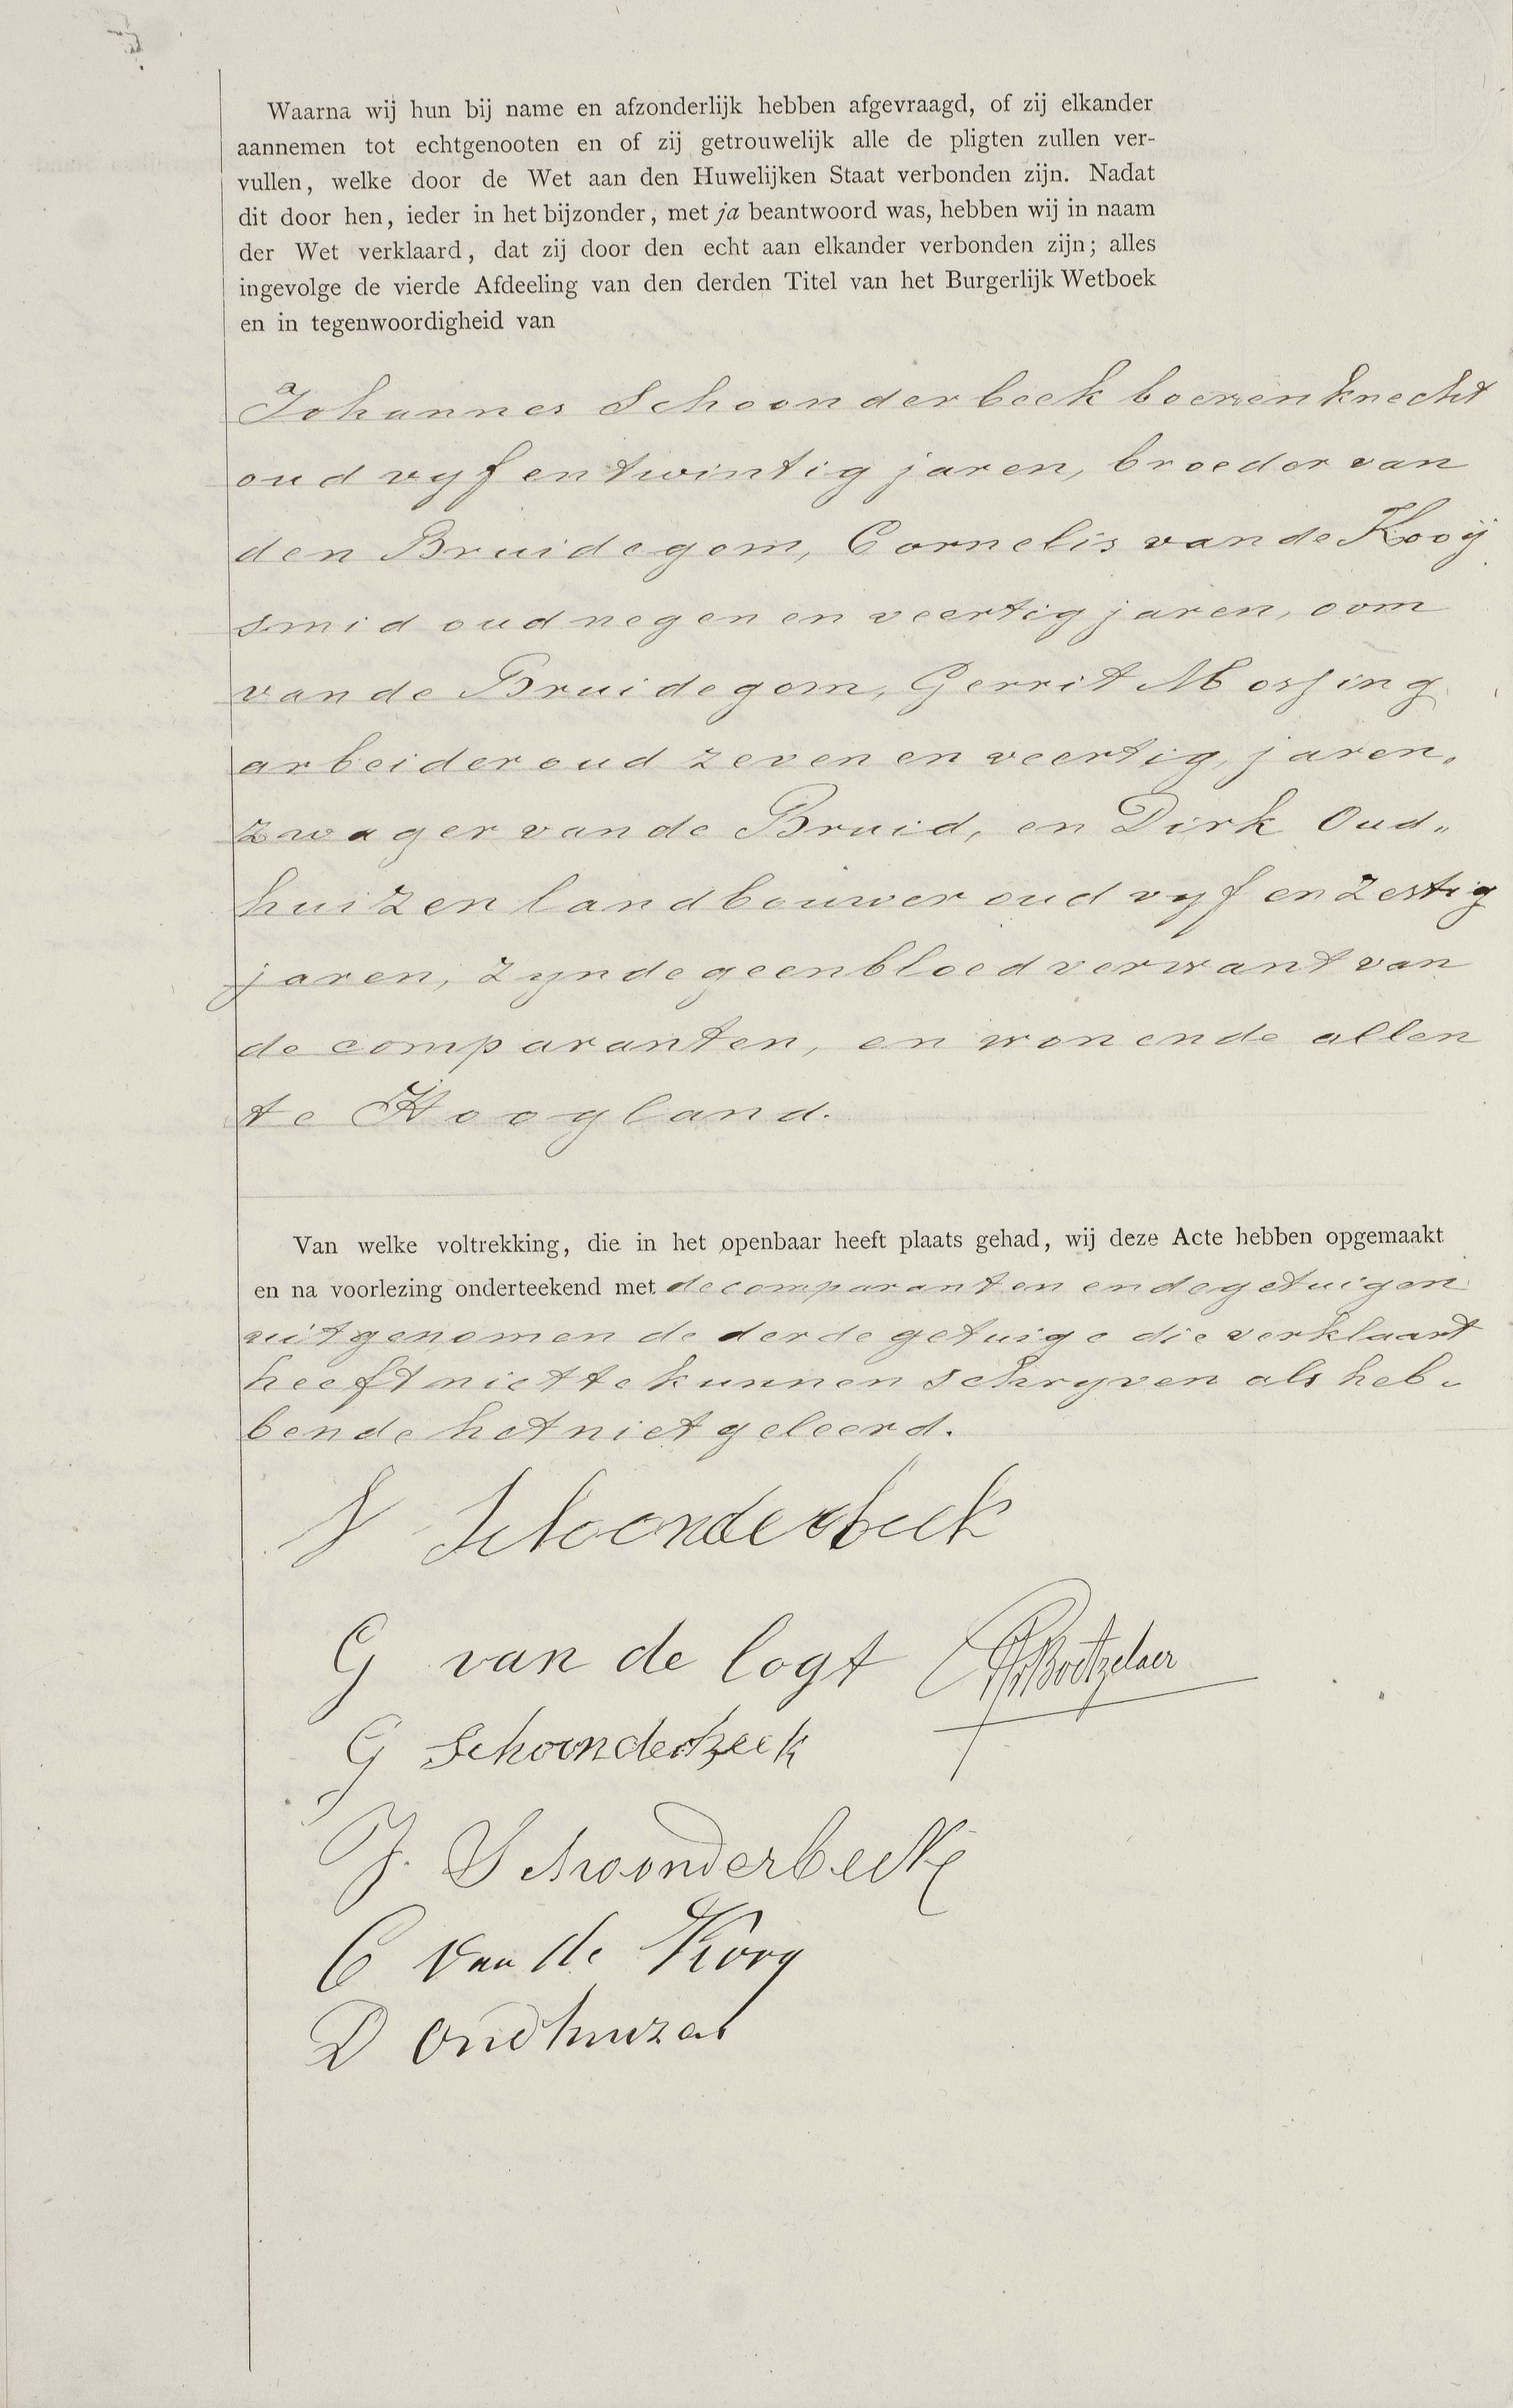 Waarna wij hun bij name en afzonderlijk hebben afgevraagd, of zij elkander
aannemen tot echtgenooten en of zij getrouwelijk alle de pligten zullen ver-
vullen, welke door de Wet aan den Huwelijken Staat verbonden zijn. Nadat
dit door hen, ieder in het bijzonder, met ja beantwoord was, hebben wij in naam
der Wet verklaard, dat zij door den echt aan elkander verbonden zijn; alles
ingevolge de vierde Afdeeling van den derden Titel van het Burgerlijk Wetboek
en in tegenwoordigheid van
Johannes Schoonderbeek boerenknecht
oud vyf en twintig jaren, broeder van
den Bruidegom, Cornelis van de Kooij
smid oud negen en veertig jaren, oom
van de Bruidegom, Gerrit Mossing
arbeider oud zeven en veertig jaren,
zwager van de Bruid, en Dirk Oud„
huizen landbouwer oud vyf en zestig
jaren, zynde geen bloedverwant van
de comparanten, en wonende allen
te Hoogland.
Van welke voltrekking, die in het openbaar heeft plaats gehad, wij deze Acte hebben opgemaakt
en na voorlezing onderteekend met de comparanten en de getuigen
uitgenomen de derde getuige die verklaart
heeft niet te kunnen schryven als heb-
bende het niet geleerd.
Schoonderbeek
G van de logt
G Schoonderbeek
J. Schoonderbeek
C van de Kooy
D Oudhuizen